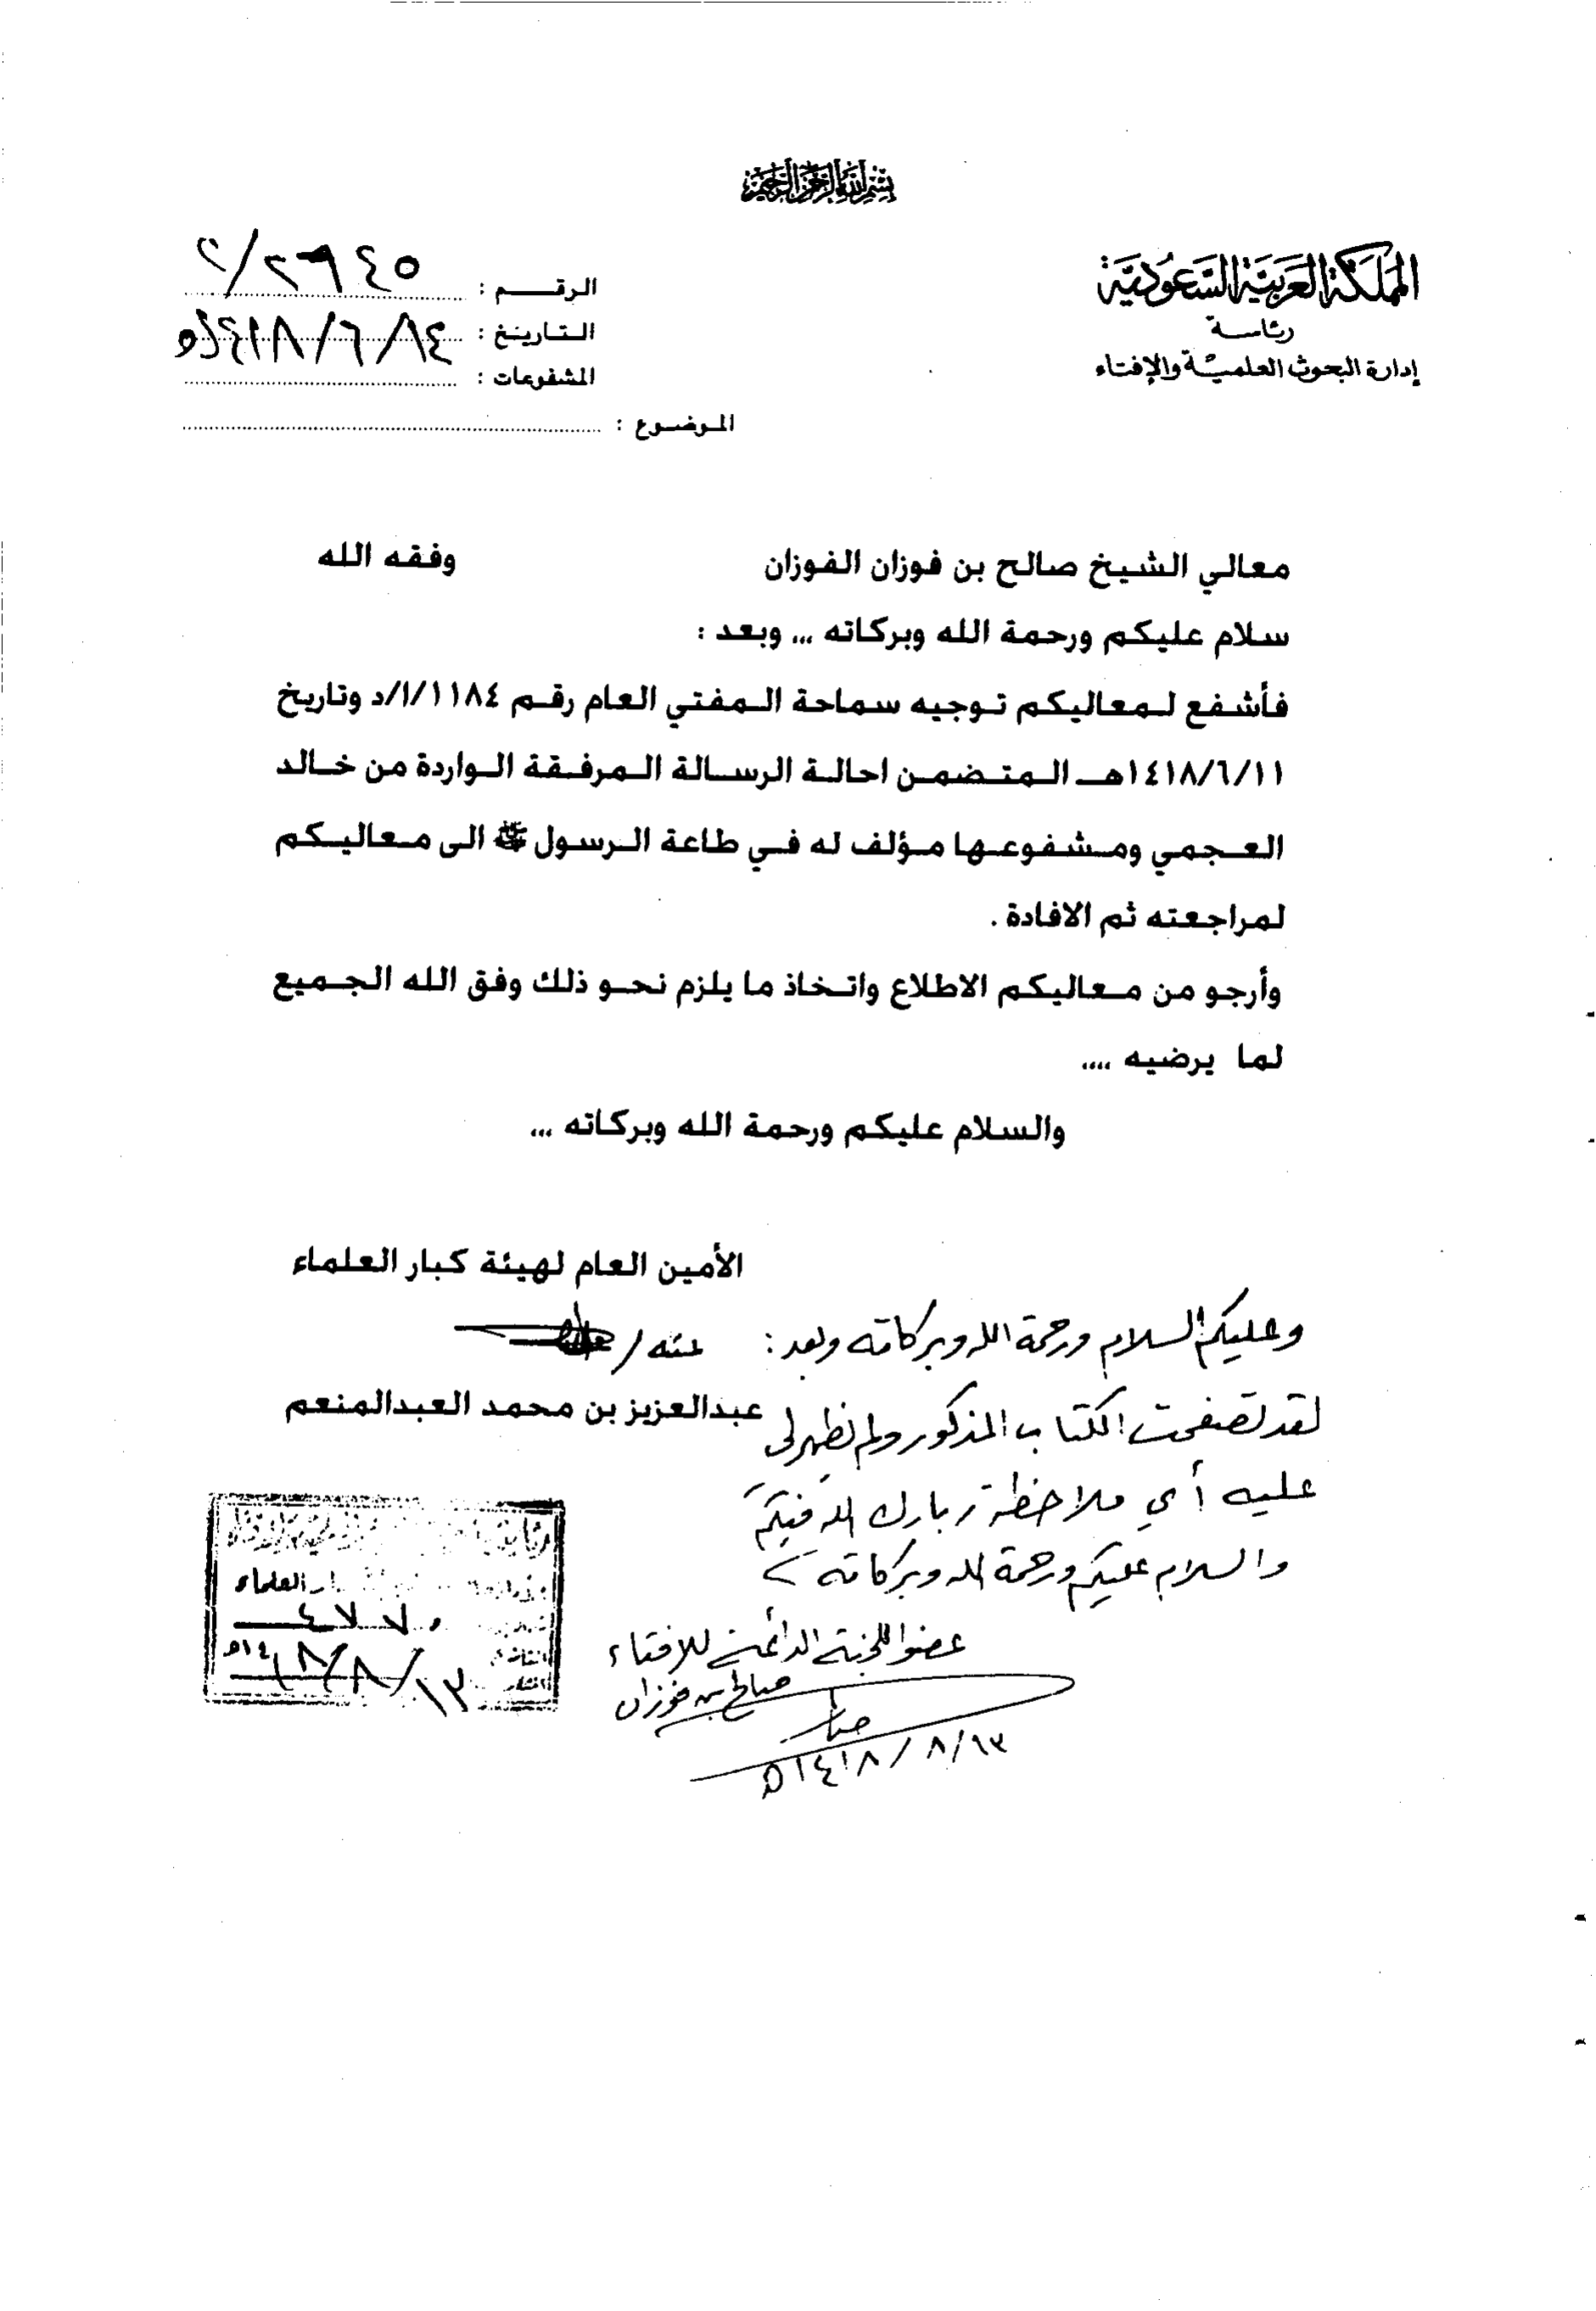 بسم الله الرحمن الرحيم
المملكة العربية السعودية
رئاسة
إدارة البحوث العلمية والإفتاء
الرقم : ٢/٢٩٤٥
التاريخ : ١٤١٨/٦/٨٤هـ
المشفوعات :
الموضوع :
معالي الشيخ صالح بن فوزان الفوزان وفقه الله
سلام عليكم ورحمة الله وبركاته ... وبعد :
فأشفع لمعاليكم توجيه سماحة المفتي العام رقم ١١٨٤/١/د وتاريخ
١٤١٨/٦/١١هـ المتضمن احالة الرسالة المرفقة الواردة من خالد
العجمي ومشفوعها مؤلف له في طاعة الرسول ﷺ الى معاليكم
لمراجعته ثم الافادة .
وأرجو من معاليكم الاطلاع واتخاذ ما يلزم نحو ذلك وفق الله الجميع
لما يرضيه ....
والسلام عليكم ورحمة الله وبركاته ...
الأمين العام لهيئة كبار العلماء
عنه /
عبدالعزيز بن محمد العبدالمنعم
وعليكم السلام ورحمة الله وبركاته وبعد :
لقد تصفحت الكتاب المذكور ولم تظهر لي
عليه أي ملاحظة وبارك الله فيكم
والسلام عليكم ورحمة الله وبركاته
عضو اللجنة الدائمة للافتاء
صالح بن فوزان
١٤١٨/٨/١٣هـ
العلماء
١٤١٨/٨/١٣هـ